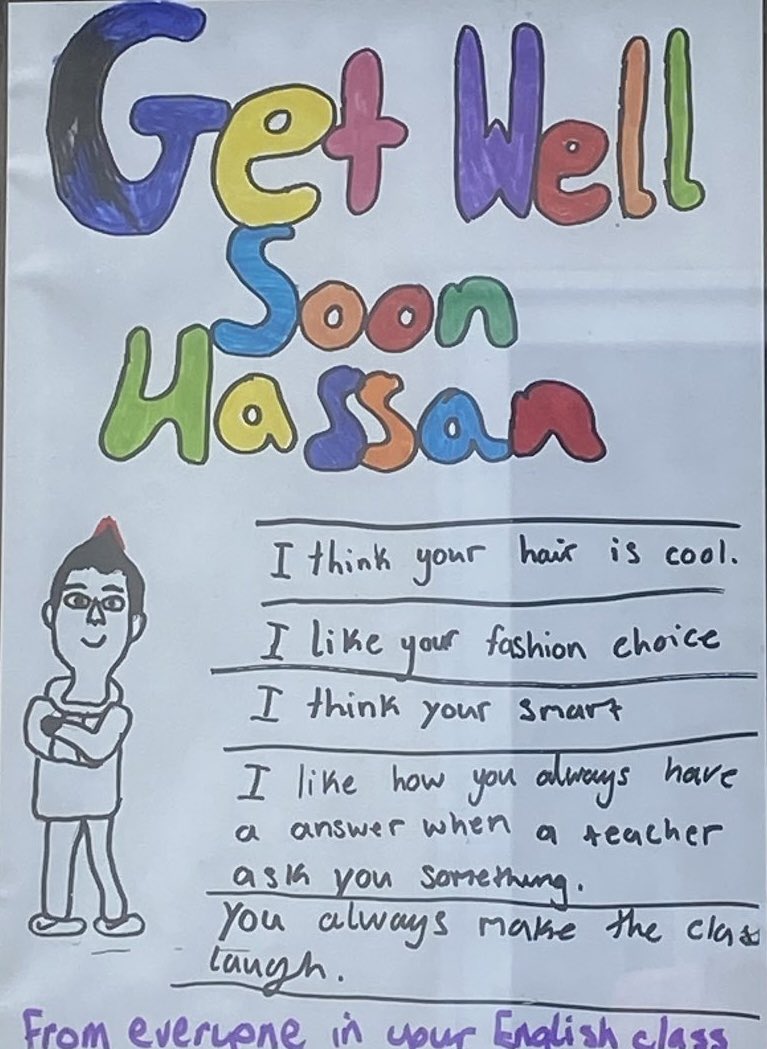 Get Well
Soon
Hassan
I think your hair is cool.
I like your fashion choice
I think your smart
I like how you always have
a answer when a teacher
ask you something.
You always make the class
laugh.
From everyone in your English class